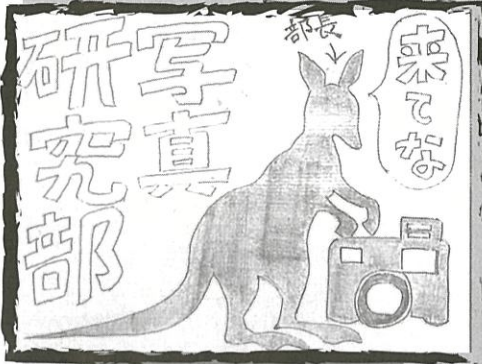 写真
研究部
部長
来てな